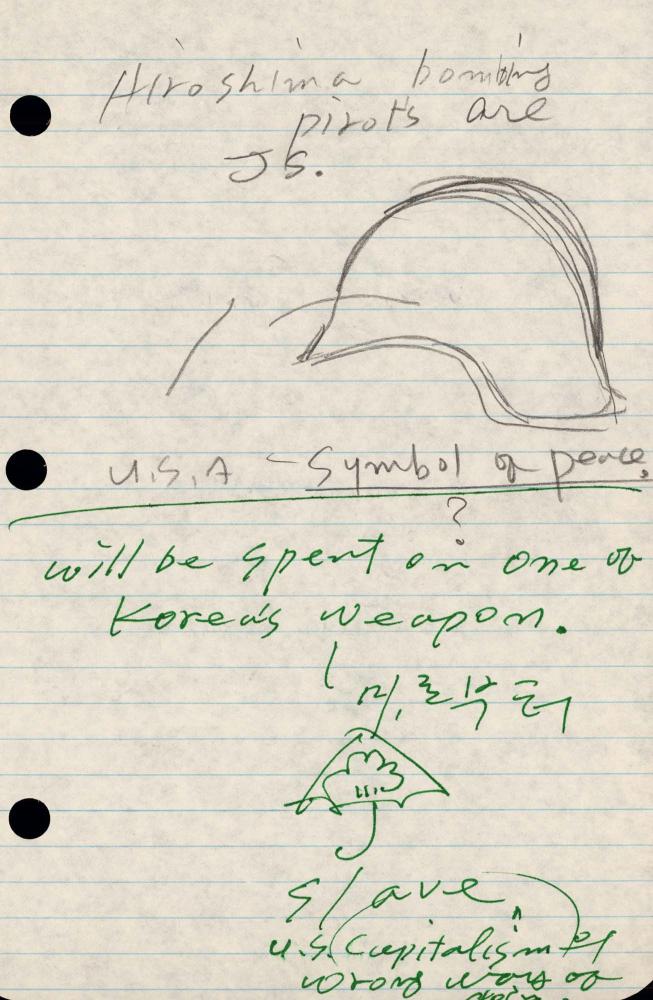 Hiroshima bombing
pirots are
JS.
U.S.A - Symbol of peace.
?
will be spent on one of
Korea's weapon.
미,로부터
slave
U.S. Capitalism
wrong way of